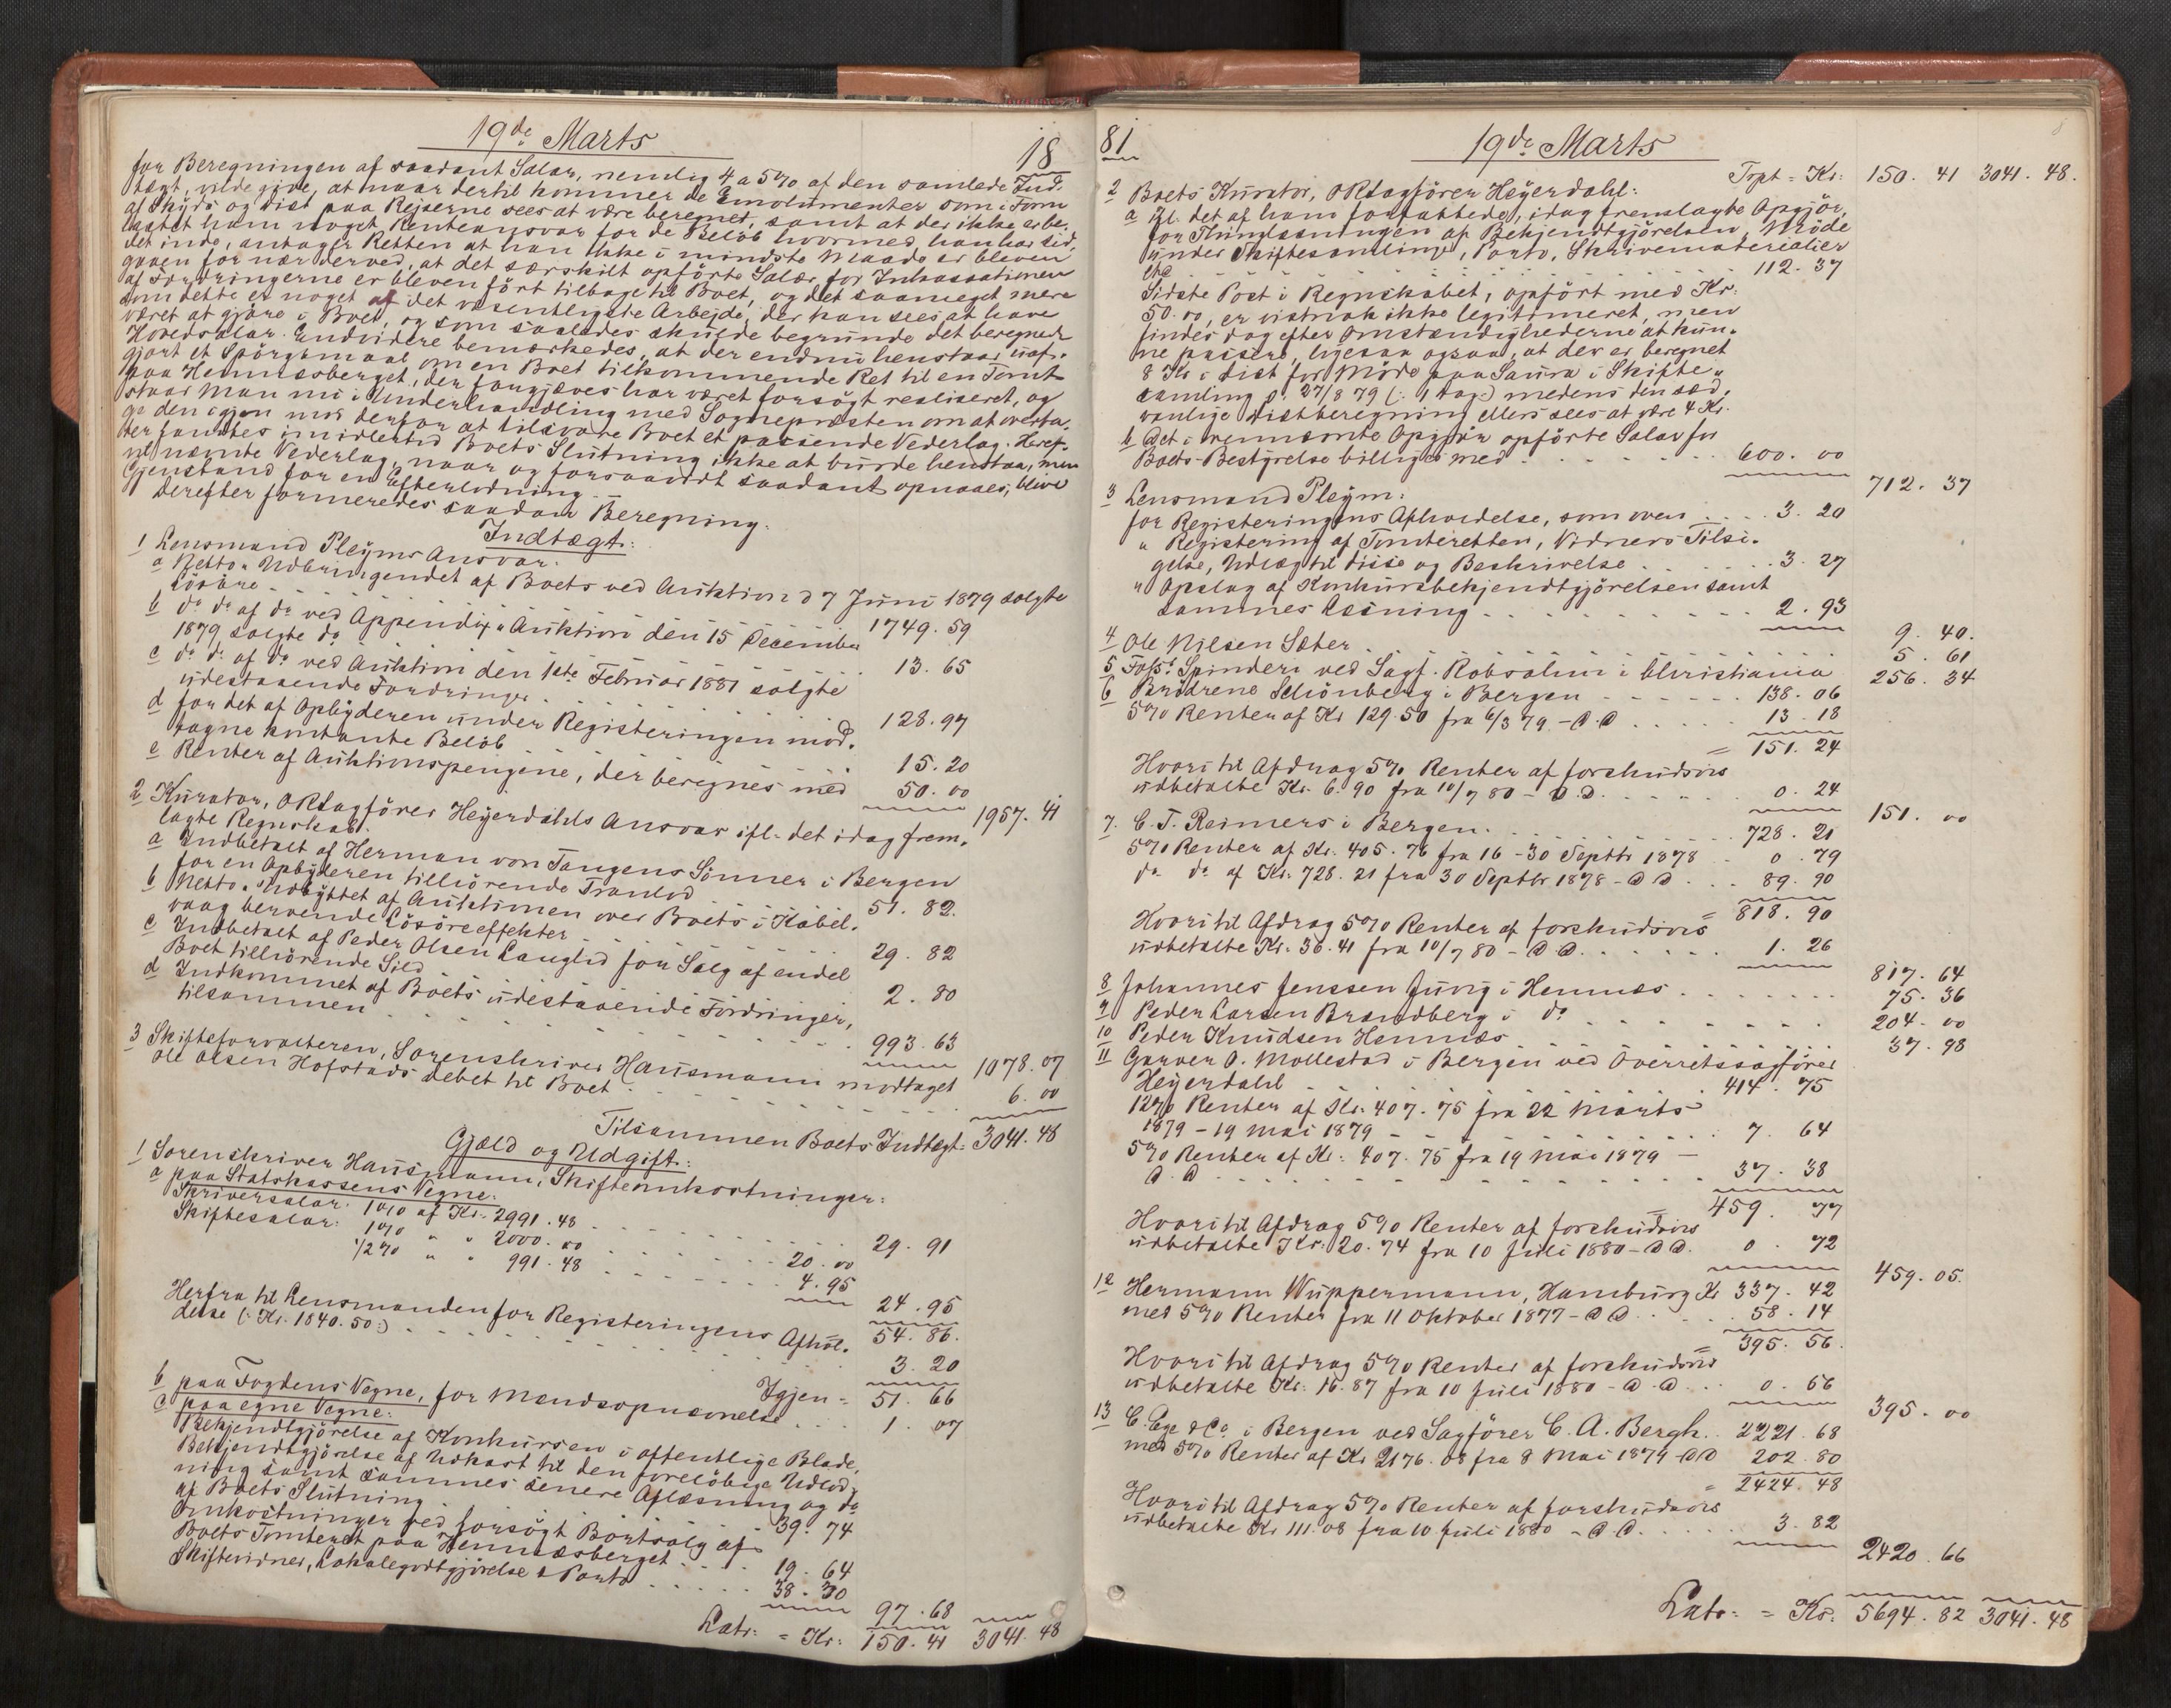 19de Marts
18
for Beregningen af saadant Salær, nemlig 4 a 5% af den samlede Ind-
tægt, vilde give, at naar dertil kommer de Emolumenter som i Form
af Skyds og Diæt paa Rejserne sees at være beregnet, samt at der ikke er be-
lastet ham noget Renteansvar for de Beløb hvormed han har sid-
det inde, antager Retten at han ikke i mindste Maade er bleven
gaaen for nær derved, at det særskilt opførte Salær for Inkassationen
af Fordringerne er bleven ført tilbage til Boet, og det saameget mere
som dette er noget af det væsentligste Arbejde, der kan sees at have
været at gjøre i Boet, og som saaledes skulde begrunde det beregnede
Hovedsalær. Endvidere bemærkedes, at der endnu henstaar uaf-
gjort et Spørgsmaal om en Boet tilkommende Ret til en Tomt
paa Hemnæsberget, der forgjæves har været forsøgt realiseret, og
staar man nu i Underhandling med Sognepræsten om at overta-
ge den igjen mod derfor at tilsvare Boet et passende Vederlag. Heref-
ter fandtes imidlertid Boets Slutning ikke at burde henstaa, men
vil nævnte Vederlag, naar og forsaavidt saadant opnaaes, blive
Gjenstand for en Efterlodning.
Derefter formeredes saadan Beregning:
Indtægt:
1 Lensmand Pleyms Ansvar:
a Netto-Udbringendet af Boets ved Auktion d 7 Juni 1879 solgte
Løsøre . . . 1749. 59
b do do af do ved Appendix-Auktion den 15 December
1879 solgte do . . . 13. 65
c do do af do ved Auktion den 1ste Februar 1881 solgte
udestaaende Fordringer . . . 128. 97
d for det af Opbyderen under Registeringen mod-
tagne kontante Beløb . . . 15. 20
e Renter af Auktionspengene, der beregnes med 50. 00
1957. 41
2 Kurator, O R Sagfører Heyerdahls Ansvar ifl. det idag frem-
lagte Regnskab:
a Indbetalt af Herman von Tangens Sønner i Bergen
for en Opbyderen tilhørende Tranlod . . . 51. 82.
b Netto-Udbyttet af Auktionen over Boets i Kabel-
vaag beroende Løsøreeffekter . . . 29. 82
c Indbetalt af Peder Olsen Langlid for Salg af endel
Boet tilhørende Sild . . . 2. 80
d Indkommet af Boets udestaaende Fordringer,
tilsammen . . . 993. 63
1078. 07
3 Skifteforvalteren, Sorenskriver Hausmann modtaget
Ole Olsen Hofstads Debet til Boet . . . 6. 00
Tilsammen Boets Indtægt = 3041. 48
Gjæld og Udgift:
1 Sorenskriver Hausmann, Skifteomkostninger:
a paa Statskassens Vegne:
Skriversalær: 1% af Kr. 2991. 48 . . . 29. 91
Skiftesalær: 1% " " 2000. 00 . . . 20. 00
1/2% " " 991. 48 . . . 4. 95
24. 95
54. 86.
Herfra til Lensmanden for Registeringens Afhol-
delse (: Kr. 1840. 50 :) . . . 3. 20
Igjen = 51. 66
b paa Fogdens Vegne, for Mandsopnævnelse . . . 1. 07
c paa egne Vegne:
Bekjendtgjørelse af Konkursen i offentlige Blade,
Bekjendtgjørelse af Udkast til den foreløbige Udlod-
ning samt sammes senere Aflæsning og do
af Boets Slutning . . . 39. 74
Omkostninger ved forsøgt Bortsalg af
Boets Tomteret paa Hemnæsberget . . . 19. 64
Skiftevidner, Lokalegodtgjørelse & Porto . . . 38. 30
97. 68
Latr: = Kr: 150. 41 3041. 48
81
19de Marts
Trpt = Kr: 150. 41 3041. 48.
2 Boets Kurator, O R Sagfører Heyerdahl:
a Ifl. det af ham forfattede, idag fremlagte Opgjør,
for Thinglæsningen af Bekjendtgjørelsen, Møde
under Skiftesamling, Porto, Skrivematerialier
etc . . . 112. 37
Sidste Post i Regnskabet, opført med Kr.
50. 00, er vistnok ikke legitimeret, men
findes dog efter Omstændighederne at kun-
ne passere, ligesaa ogsaa, at der er beregnet
8 Kr i Diæt for Møde paa Saura i Skifte-
samling d. 27/8 79 (: 1 Dag :) medens den sæd-
vanlige Diætberegning ellers sees at være 4 Kr.
b Det i nævnte Opgjør opførte Salær for
Boets Bestyrelse billiges med . . . 600. 00
712. 37
3 Lensmand Pleym:
for Registeringens Afholdelse, som oven . . . 3. 20
" Registering af Tomteretten, Vidners Tilsi-
gelse, Udlæg til disse og Beskrivelse . . . 3. 27
" Opslag af Konkursbekjendtgjørelsen samt
sammes Læsning . . . 2. 93
9. 40.
4 Ole Nilsen Sæter . . . 5. 61
5 Foss. Spinderi ved Sagf. Robsahm i Christiania 256. 34
6 Brødrene Schönberg i Bergen . . . 138. 06
5% Renter af Kr 129. 50 fra 6/3 79 - D. D . . . 13. 18
= 151. 24
Hvori til Afdrag 5% Renter af forskudsvis
udbetalte Kr. 6. 90 fra 10/7 80 - D. D. . . . 0. 24
151. 00
7. C. T. Reimers i Bergen . . . 728. 21
5% Renter af Kr. 405. 76 fra 16 - 30 Septbr 1878 . . 0. 79
do do af Kr. 728. 21 fra 30 Septbr 1878 - D D . . . 89. 90
= 818. 90
Hvori til Afdrag 5% Renter af forskudsvis
udbetalte Kr. 36. 41 fra 10/7 80 - D D. . . . 1. 26
817. 64
8 Johannes Jenssen Juvig i Hemnæs . . . 75. 36
9 Peder Larsen Brændberg i do . . . 204. 00
10 Peder Knudsen Hemnæs . . . 37. 98
11 Garver O. Mollestad i Bergen ved Overretssagfører
Heyerdahl . . . 414. 75
12% Renter af Kr. 407. 75 fra 22 Marts
1879 - 19 Mai 1879 . . . 7. 64
5% Renter af Kr. 407. 75 fra 19 Mai 1879 -
D. D . . . 37. 38
= 459. 77
Hvori til Afdrag 5% Renter af forskudsvis
udbetalte Kr. 20. 74 fra 10 Juli 1880 - D D. 0. 72
459. 05.
12 Hermann Wuppermann, Hamburg Kr 337. 42
med 5% Renter fra 11 Oktober 1877 - D D . . . 58. 14
= 395. 56.
Hvori til Afdrag 5% Renter af forskudsvis
udbetalte Kr. 16. 87 fra 10 Juli 1880 - D. D . . 0. 56
395. 00
13 C. Ege & Co. i Bergen ved Sagfører C. A. Bergh. . 2221. 68
med 5% Renter af Kr 2176. 08 fra 8 Mai 1879 - D D 202. 80
= 2424. 48
Hvori til Afdrag 5% Renter af forskudsvis
udbetalte Kr 111. 08 fra 10 Juli 1880 - D. D. . . . 3. 82
2420. 66
Latr: = Kr: 5694. 82 3041. 48